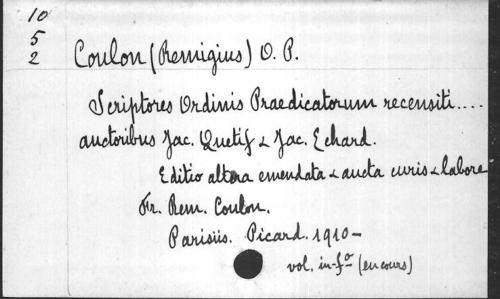 10
5
2
Coulon (Remigius) O. P.
Scriptores Ordinis Praedicatorum recensiti....
auctoribus Jac. Quetif & Jac. Echard.
Editio altera emendata & aucta curis & labore
Fr. Rem. Coulon.
Parisiis. Picard. 1910-
vol. in-fo (en cours)